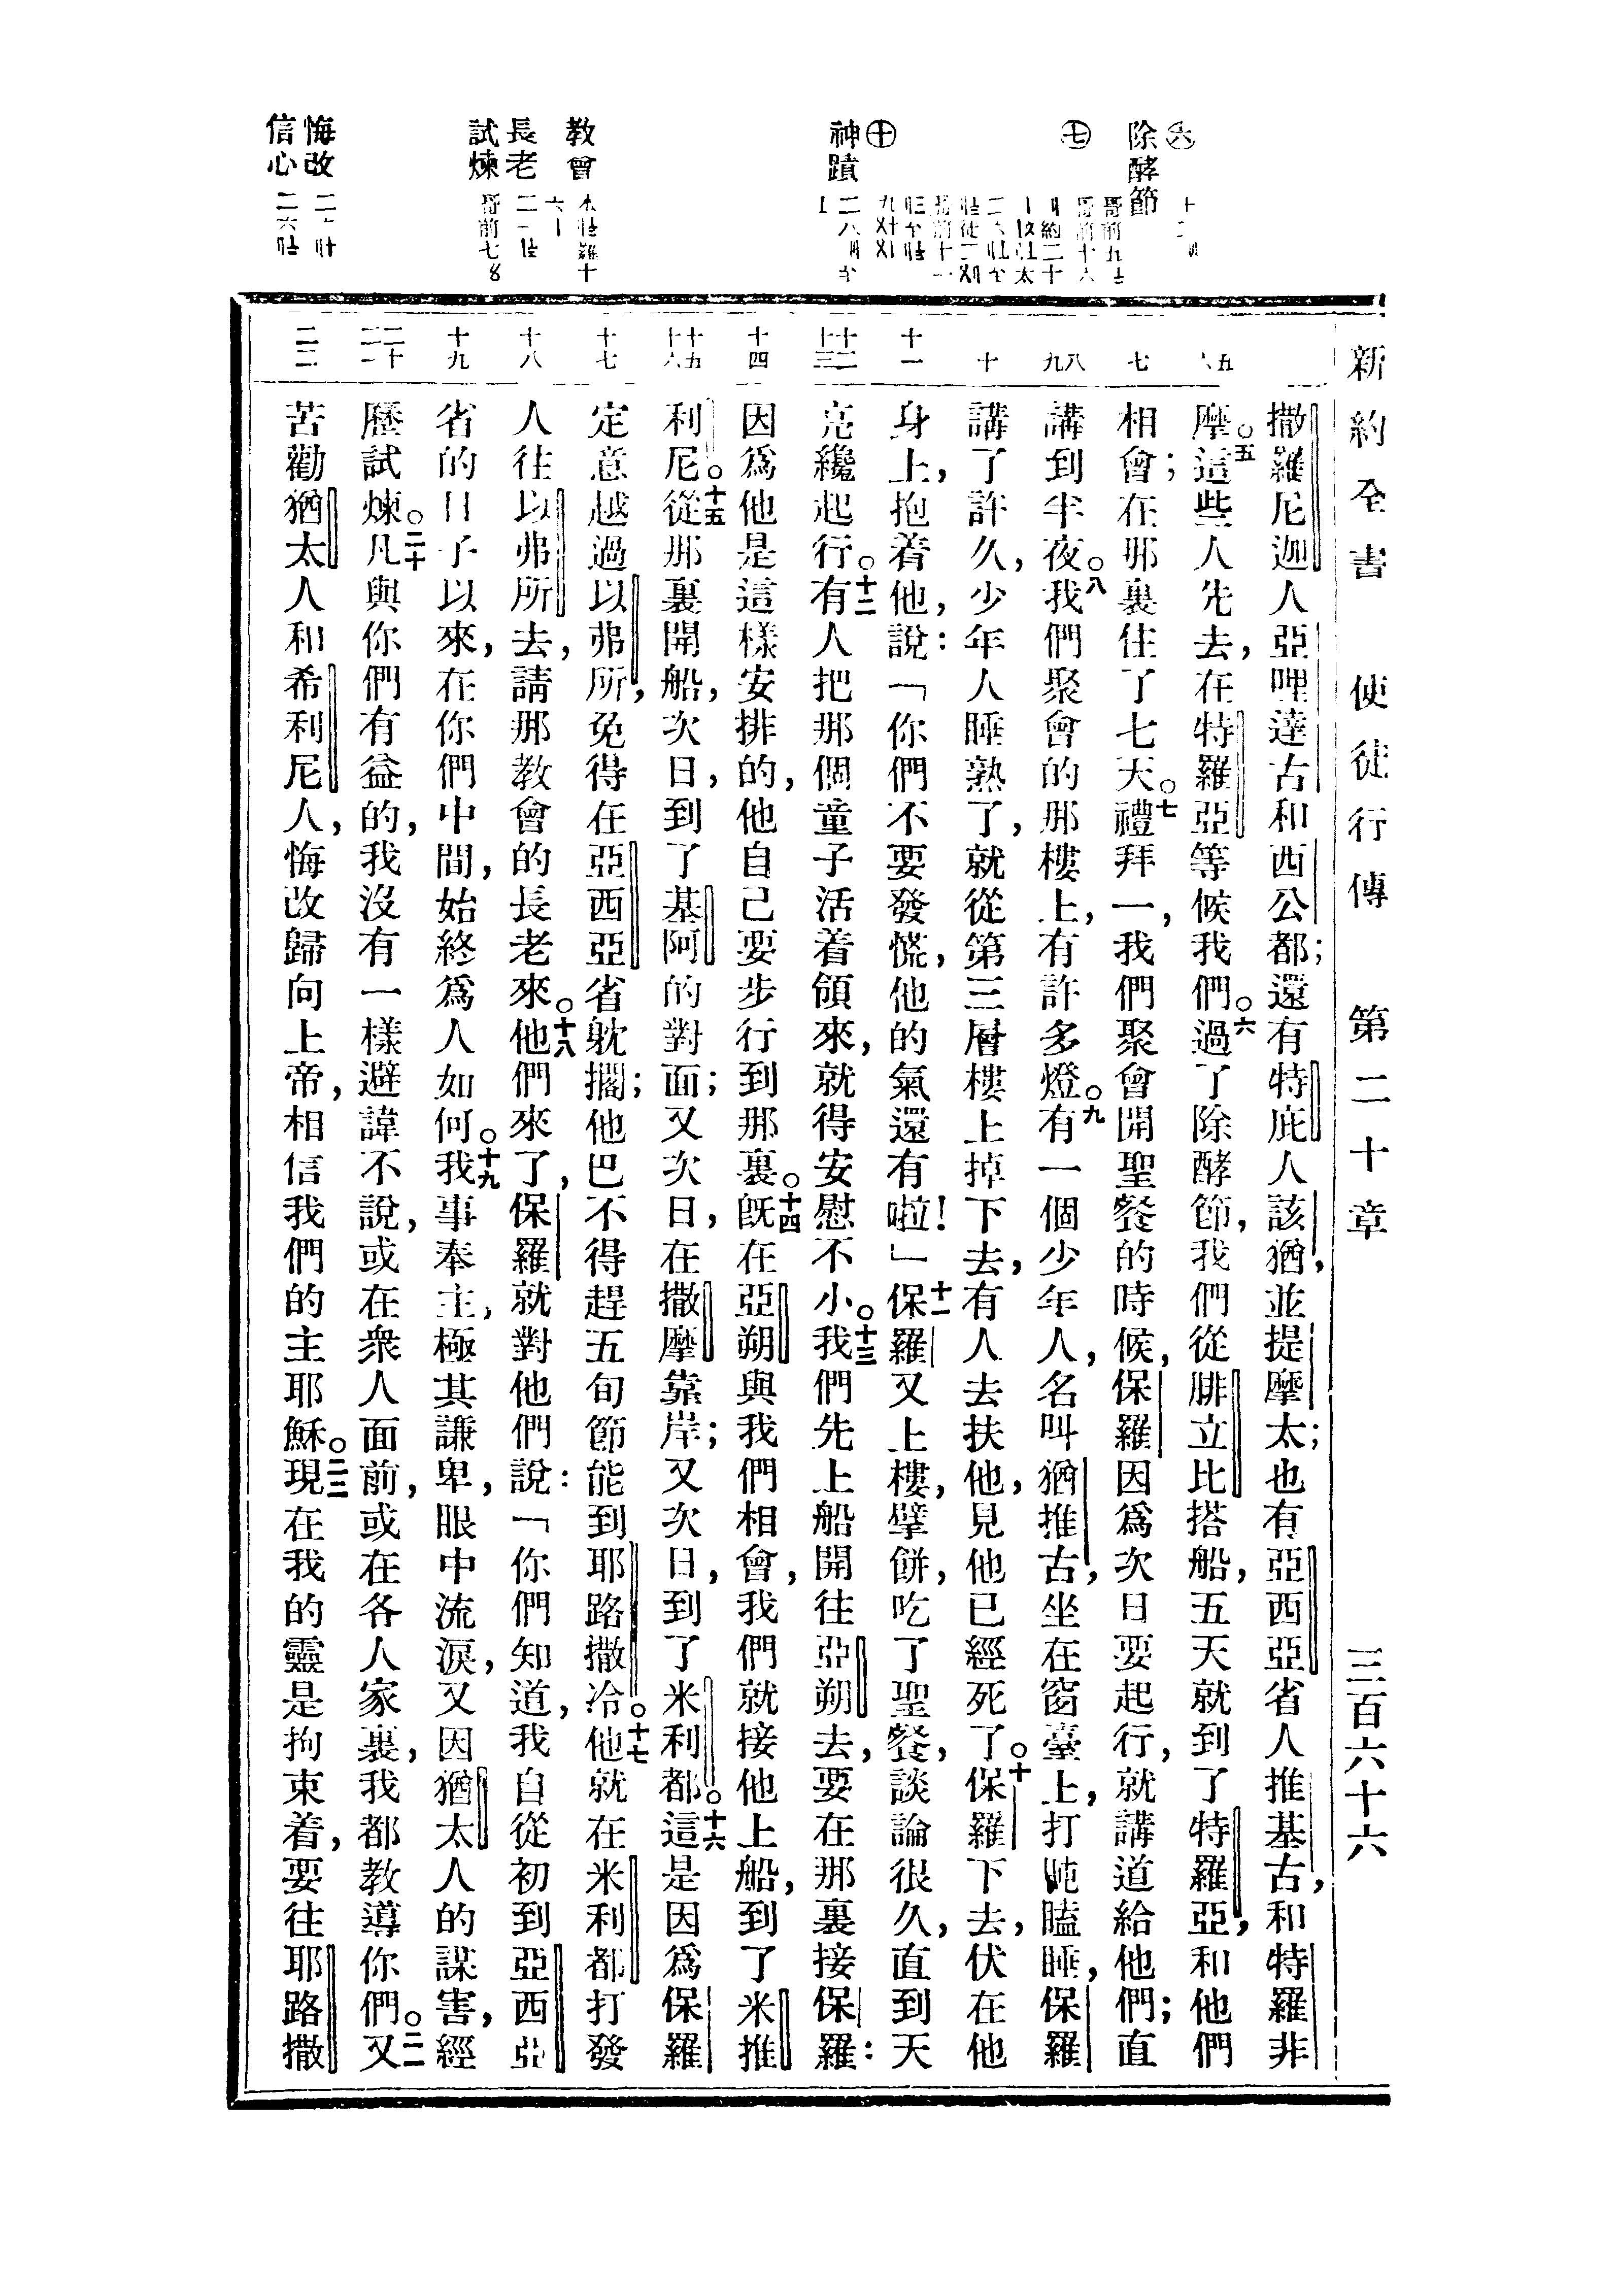 新約全書　使徒行傳　第二十章　三百六十六
㊅
除酵節
㊆
㊉
神蹟
教會
長老
試煉
悔改
信心
撒羅尼迦人亞哩達古和西公都；還有特庇人該猶，並提摩太；也有亞西亞省人推基古，和特羅非
摩。五這些人先去，在特羅亞等候我們。六過了除酵節，我們從腓立比搭船，五天就到了特羅亞，和他們
相會；在那裏住了七天。七禮拜一，我們聚會開聖餐的時候，保羅因爲次日要起行，就講道給他們；直
講到半夜。八我們聚會的那樓上，有許多燈。九有一個少年人，名叫猶推古，坐在窗臺上，打盹瞌睡，保羅
講了許久，少年人睡熟了，就從第三層樓上掉下去，有人去扶他，見他已經死了。十保羅下去，伏在他
身上，抱着他，說：「你們不要發慌，他的氣還有啦！」十一保羅又上樓，擘餅，吃了聖餐，談論很久，直到天
亮纔起行。十二有人把那個童子活着領來，就得安慰不小。十三我們先上船開往亞朔去，要在那裏接保羅：
因爲他是這樣安排的，他自己要步行到那裏。十四旣在亞朔與我們相會，我們就接他上船，到了米推
利尼。十五從那裏開船，次日，到了基阿的對面；又次日，在撒摩靠岸；又次日，到了米利都。十六這是因爲保羅
定意越過以弗所，免得在亞西亞省躭擱；他巴不得趕五旬節能到耶路撒冷。十七他就在米利都打發
人往以弗所去，請那教會的長老來。十八他們來了，保羅就對他們說：「你們知道，我自從初到亞西亞
省的日子以來，在你們中間，始終爲人如何。十九我事奉主，極其謙卑，眼中流淚，又因猶太人的謀害，經
歷試煉。二十凡與你們有益的，我沒有一樣避諱不說，或在衆人面前，或在各人家裏，我都教導你們。二一又
苦勸猶太人和希利尼人，悔改歸向上帝，相信我們的主耶穌。二二現在我的靈是拘束着，要往耶路撒